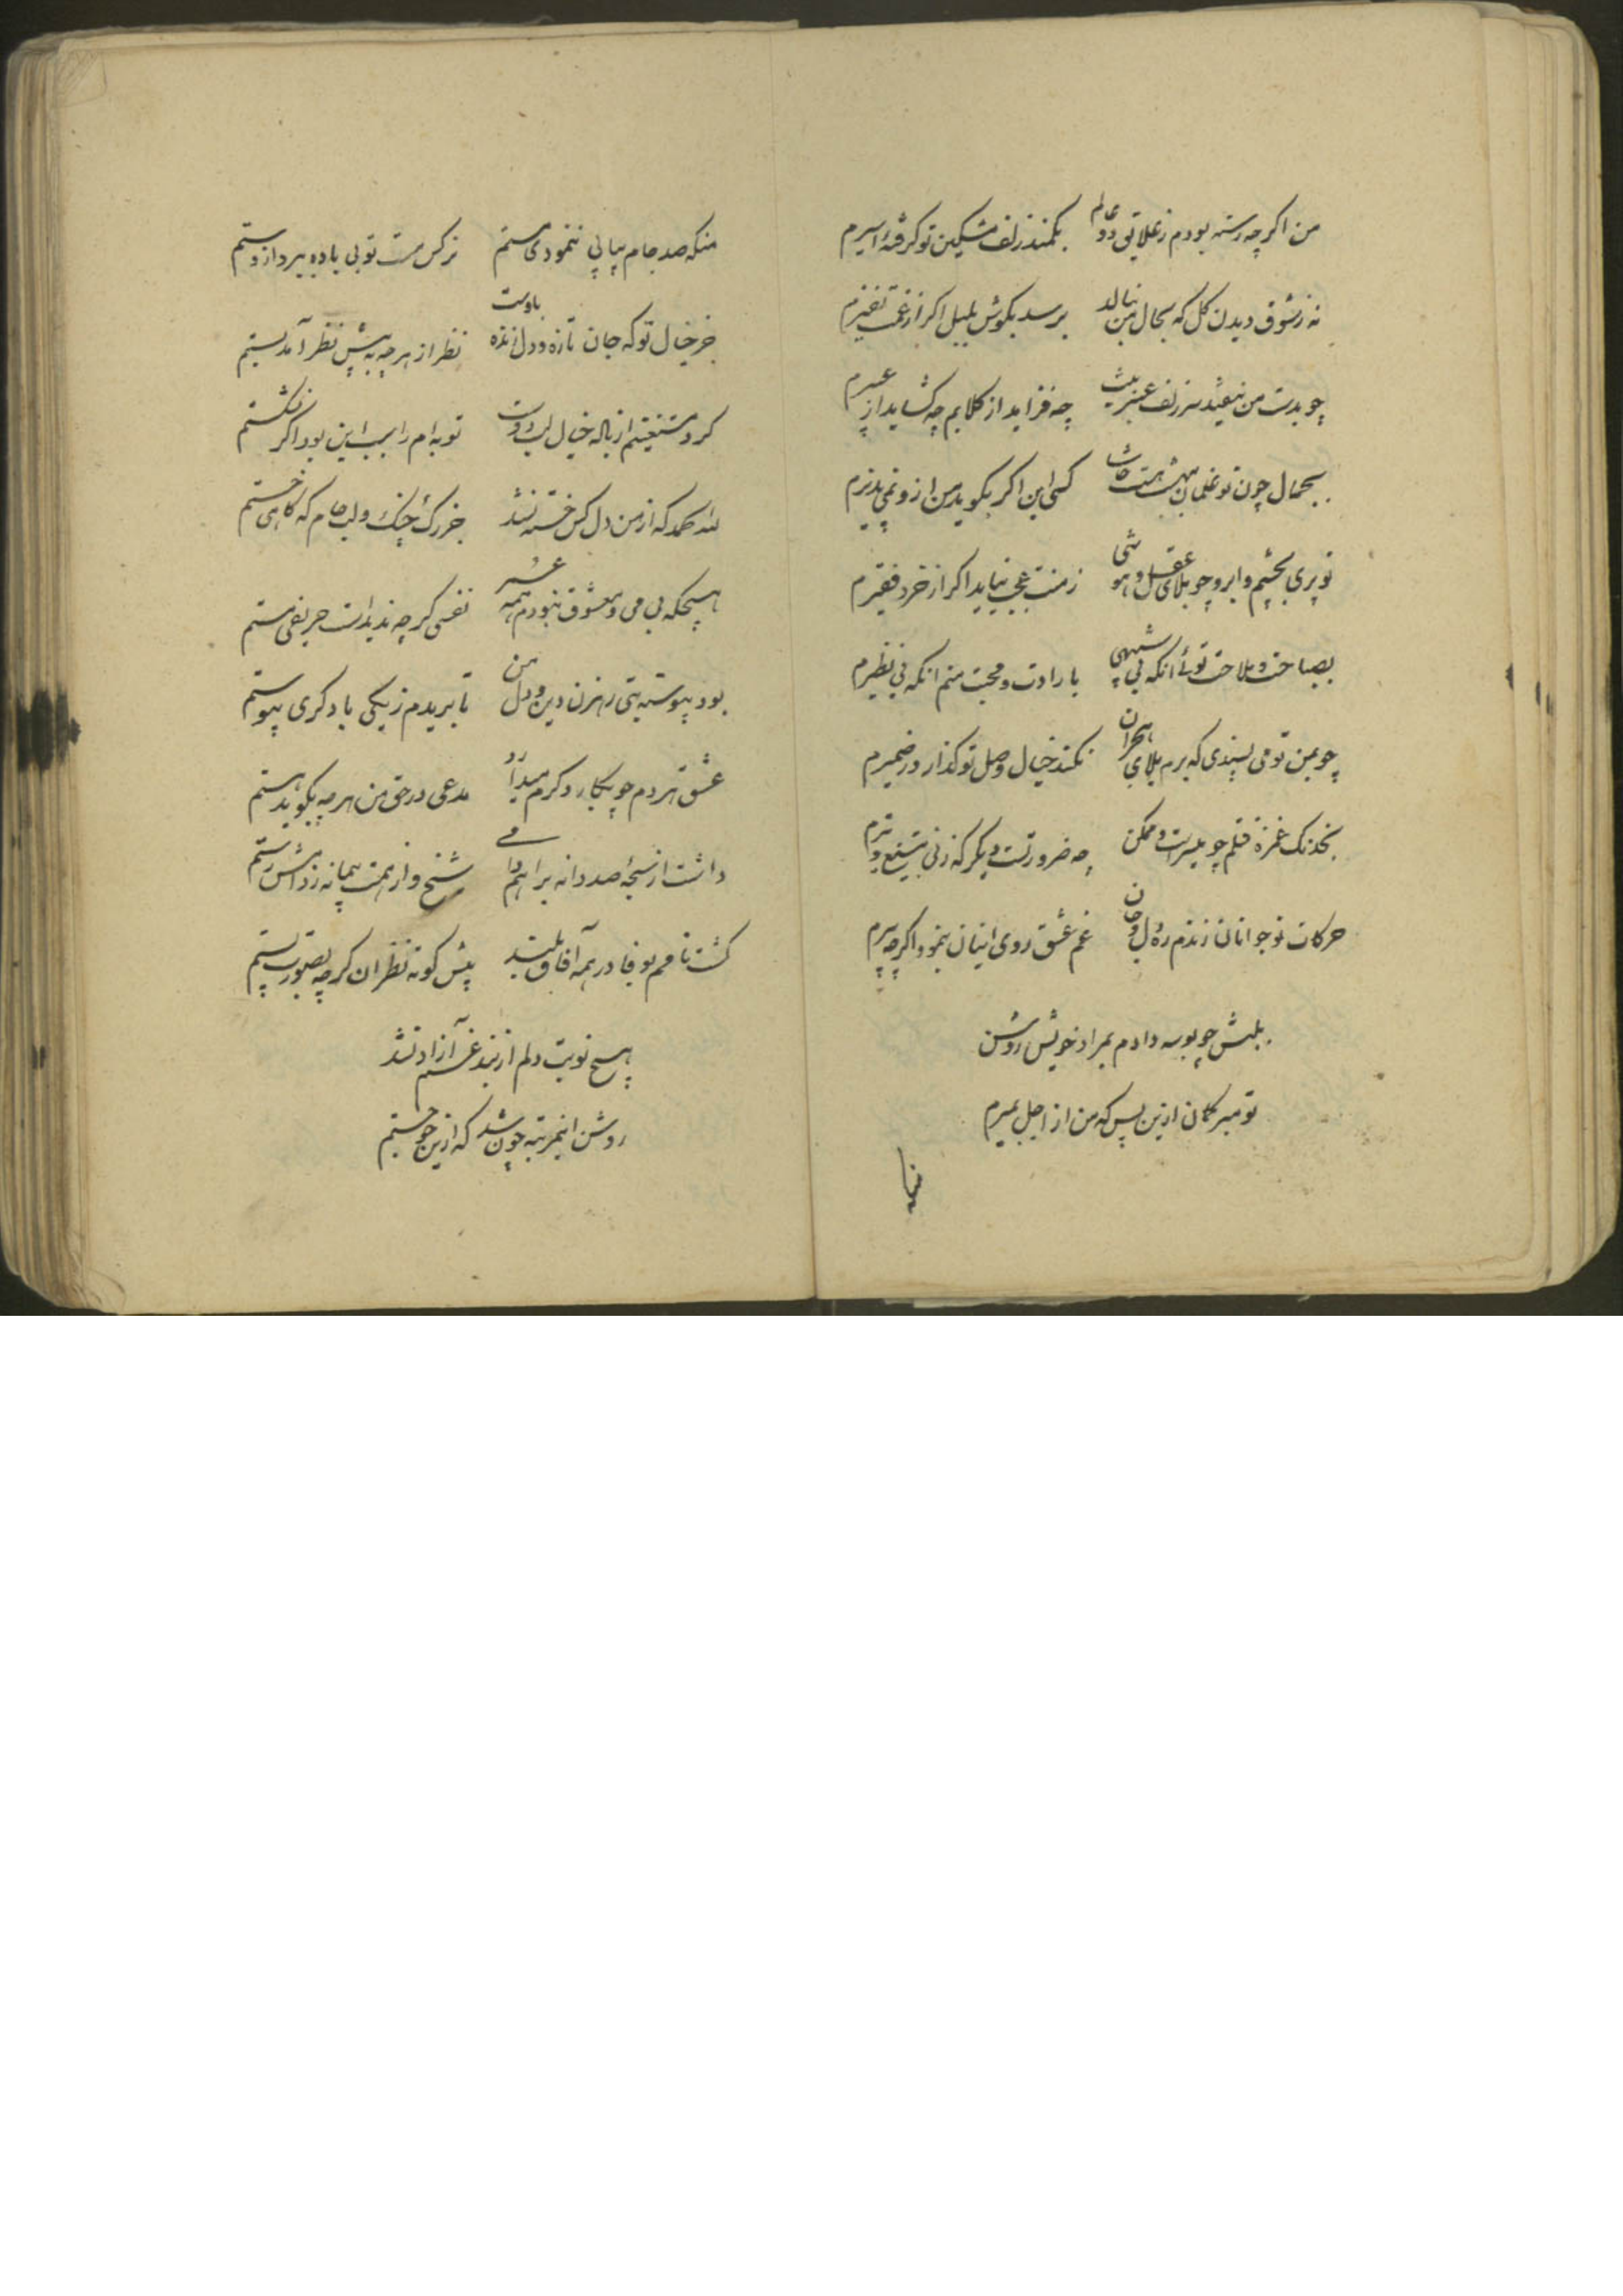 من اکرچه رسته بودم ز علایق دو عالم بکمند زلف مشکین تو کرفتهٔ اسیرم
نه ز شوق دیدن کل که بحال من بنالد برسد بکوش بلبل اکر از غمت نفیرم
چو بدست من نیفتد سر زلف عنبرینت چه فزاید از کلابم چه کشاید از عبیرم
بجمال چون تو غلمان ببهشت کسی این اکر بکوید من ازو نمی پذیرم
تو پری بچشم و ابرو چو بلای عقل و هوشی ز منت عجب نیاید اکر از خرد فقیرم
بصباحت و ملاحت توئی انکه بی شبیهی بارادت و محبت منم انکه بی نظیرم
چو بمن تو می پسندی که برم بلای هجران نکند خیال وصل تو کذار در ضمیرم
بخدنک غمزه قتلم چو میسرست و ممکن چه ضرورتست دیکر که زنی بتیغ و تیرم
حرکات نوجوانان زندم ره دل و جان غم عشق روی اینان بنمود اکرچه پیرم
بلبش چو بوسه دادم بمراد خویش روشن
تو مبر کمان ازین پس که من از اجل بمیرم
منکه
منکه صد جام پیاپی ننمودی مستم نرکس مست تو بی باده ببرد از دستم
جز خیال تو که جان تازه و دل زنده باوست نظر از هرچه به پیش نظر آمد بستم
کرد مستغنیم از باله خیال لب دوست توبه ام را سبب این بود اکر نشکستم
لله الحمد که از من دل کس خسته نشد جز رک چنک و لب جام که کاهی خستم
هیچکه بی می و معشوق نبودم همه عمر نفسی کرچه ندیدست حریفی مستم
بود پیوسته بتی رهزن دین و دل من تا بریدم ز یکی با دکری پیوستم
عشق هر دم چو بکار دکرم میدارد مدعی در حق من هرچه بکوید هستم
داشت از سبحهٔ صد دانه براهم دامی شیخ و از همت پیمانه ز دامش رستم
کشت نامم بوفا در همه آفاق بلند پیش کوته نظران کرچه بصورت پستم
هیچ نوبت دلم از بند غم آزاد نشد
روشن اینمرتبه چون شد که ازین غم جستم